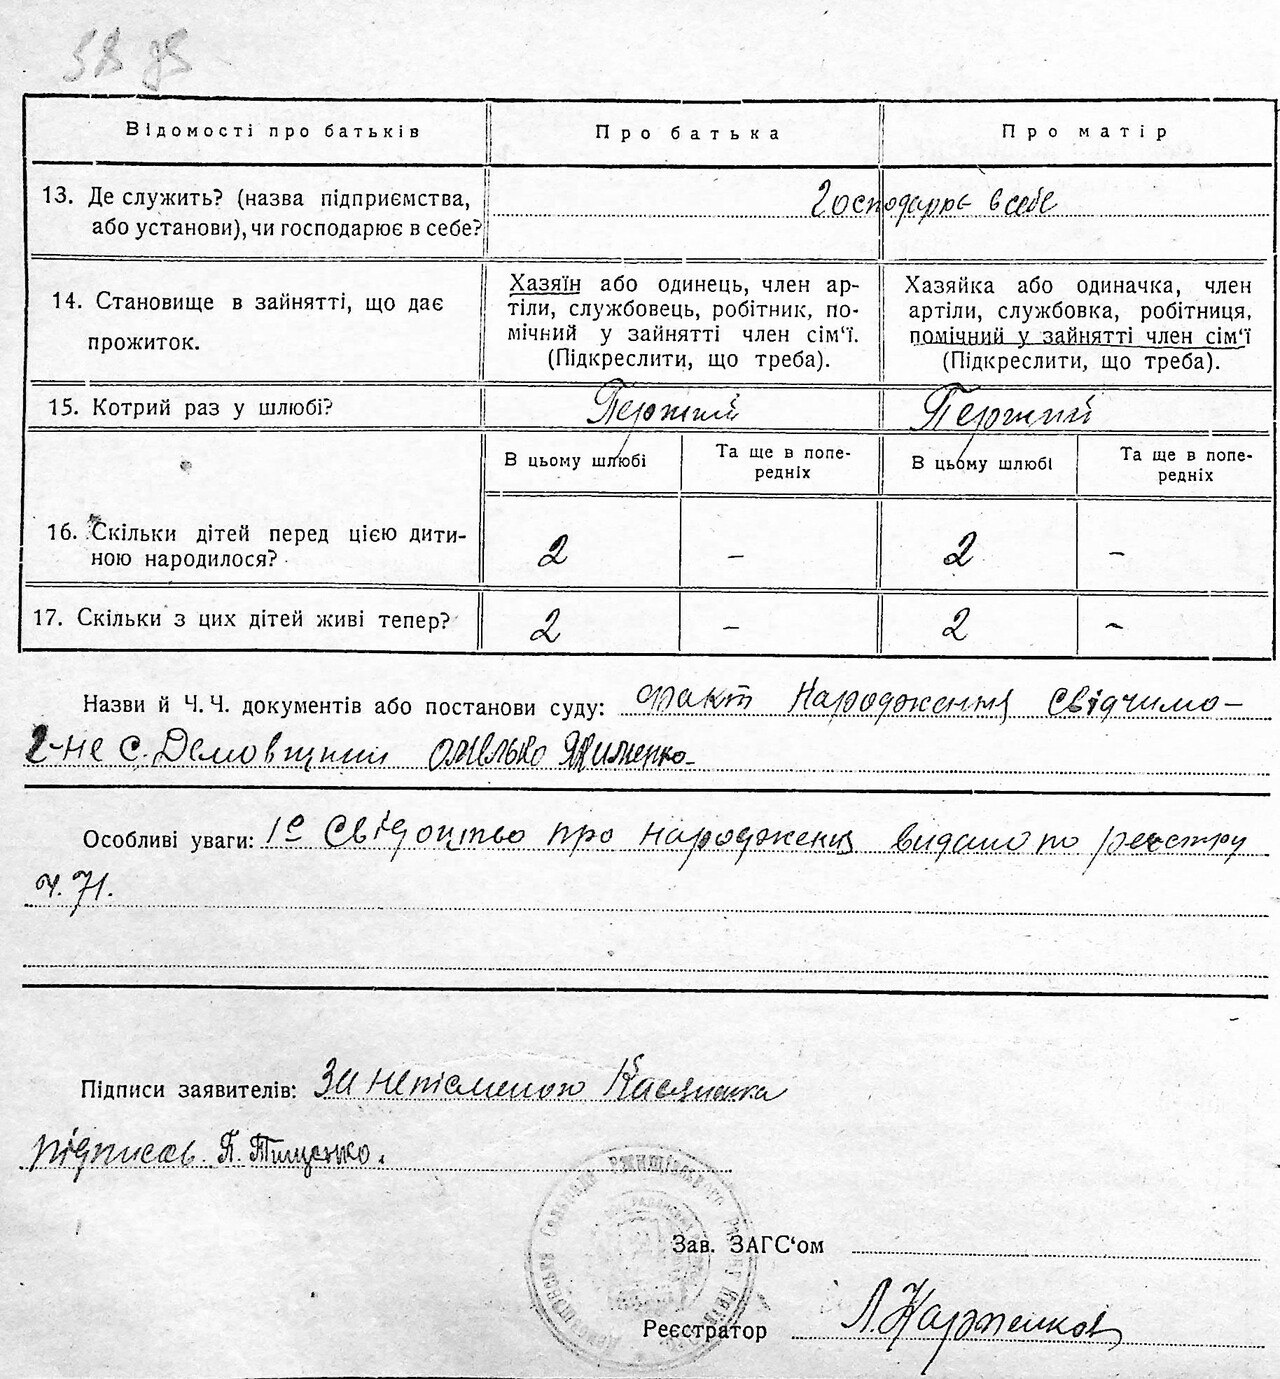 Відомості про батьків
Про батька
Про матір
13. Де служить? (назва підприємства,
або установи), чи господарює в себе?
Господарює в себе
14. Становище в зайнятті, що дає
прожиток.
Хазяїн або одинець, член ар-
тіли, службовець, робітник, по-
мічний у зайнятті член сім‘ї.
(Підкреслити, що треба).
Хазяйка або одиначка, член
артіли, службовка, робітниця,
помічний у зайнятті член сім‘ї
(Підкреслити, що треба).
15. Котрий раз у шлюбі?
Перший
Перший
В цьому шлюбі
Та ще в попе-
редніх
В цьому шлюбі
Та ще в попе-
редніх
16. Скільки дітей перед цією дити-
ною народилося?
2
-
2
-
17. Скільки з цих дітей живі тепер?
2
-
2
-
Назви й Ч. Ч. документів або постанови суду: факт народження свідчимо-
2-не с. Демовщини Омелько Якименко
Особливі уваги: 1е Свідоцтво про народження видано по реєстру
ч. 71.
Підписи заявителів: За неписьменою Касяненка
підписав П. Тищенко.
Ржищівського Району
Зав. ЗАГС‘ом
Реєстратор